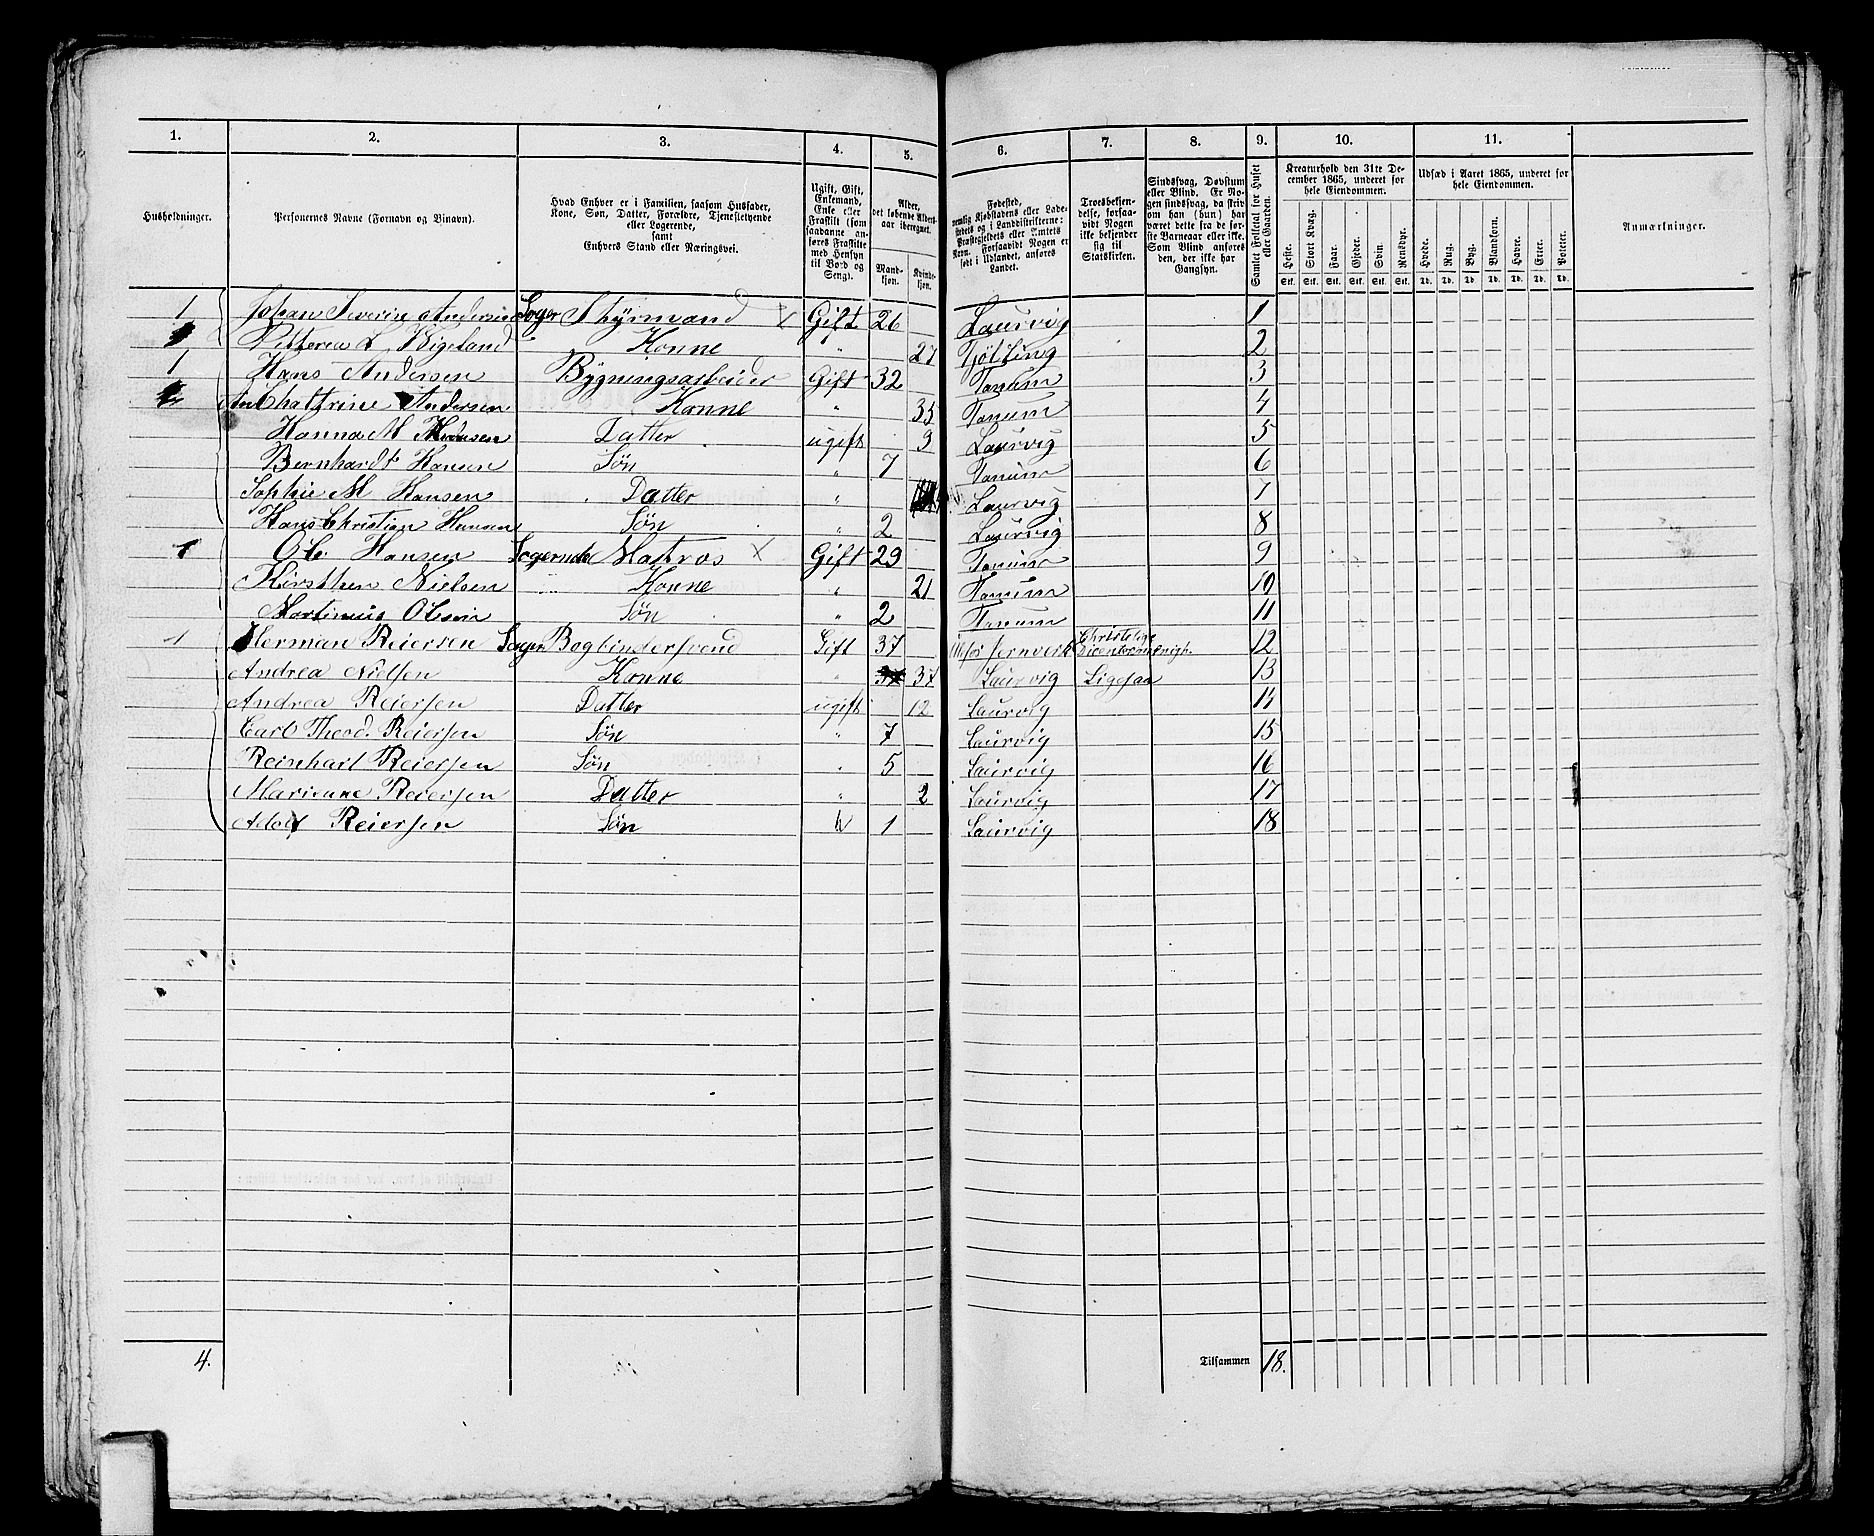 1. 2. 3. 4. 5. 6. 7. 8. 9. 10. 11.
Husholdninger.
Personernes Navne (Fornavn og Vinavn).
Hvad Enhver er i Familien, saasom Husfader,
Kone, Søn, Datter, Forældre, Tjenestetyende
eller Logerende,
samt
Enhvers Stand eller Næringsvei.
Ugift, Gift,
Enkemand,
Enke eller
Fraskilt (som
saadanne an-
føres Fraskilte
med Hensyn
til Bord og
Seng).
Alder,
det løbende Alders-
aar iberegnet.
Mand-
kjøn.
Kvinde-
kjøn.
Fødested,
nemlig Kjøbstadens eller Lade-
stedets og i Landdistrikterne:
Præstegjeldets eller Amtets
Navn. Forsaavidt Nogen er
født i Udlandet, anføres
Landet.
Troesbekjen-
delse, forsaa-
vidt Nogen
ikke bekjender
sig til
Statskirken.
Sindssvag, Døvstum
eller Blind. Er No-
gen sindssvag, da skriv
om han (hun) har
været dette fra de før-
ste Barneaar eller ikke.
Som Blind anføres
den, der ikke har
Gangsyn.
Samlet Folketal for Huset
eller Gaarden.
Kreaturhold den 31te De-
cember 1865, underet for
hele Eiendommen.
Heste. Stort Kvæg. Faar. Gjeder. Svin. Rensdyr.
Stk. Stk. Stk. Stk. Stk. Stk.
Udsæd i Aaret 1865, underet for
hele Eiendommen.
Hvede. Rug. Byg. Blandkorn. Havre. Erter. Poteter.
Td. Td. Td. Td. Td. Td. Td.
Anmærkninger.
1 Johan Severin Andersen Loger Styrmand X Gift 26 Laurvig 1
L Konne " 27 Tjölling 2
1 Hans Andersen Bygningsarbeider Gift 32 Tanum 3
An Chattrine Andersen Konne " 35 Tanum 4
Hanna M Hansen Datter ugift 9 Laurvig 5
Bernhardt Hansen Søn " 7 Tanum 6
Sophie M Hansen Datter " Laurvig 7
Hans Christian Hansen Søn " 2 Laurvig 8
1 Ole Hansen Logernde Matros X Gift 29 Tanum 9
Kirsthen Nielsen Konne " 21 Tanum 10
Martinius Olsen Søn " 2 Tanum 11
1 Herman Reiersen Loger Bogbindersvend Gift 37 12
Andrea Nielsen Konne " 37 Laurvig Ligesaa 13
Andrea Reiersen Datter ugift 12 Laurvig 14
Carl Theod. Reiersen Søn " 7 Laurvig 15
Reinhart Reiersen Søn " 5 Laurvig 16
Marianne Reiersen Datter " 2 Laurvig 17
Adolf Reiersen Søn 1 Laurvig 18
4. Tilsammen 18.